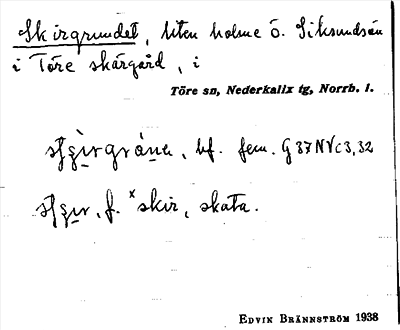 Skirgrundet, liten holme ö. Siksundsån
i Töre skärgård, i
Töre sn, Nederkalix tg, Norrb. l.
bf. fem. G 37 N V c 3, 32
f. ˣskir, skata.
EDVIN BRÄNNSTRÖM 1938